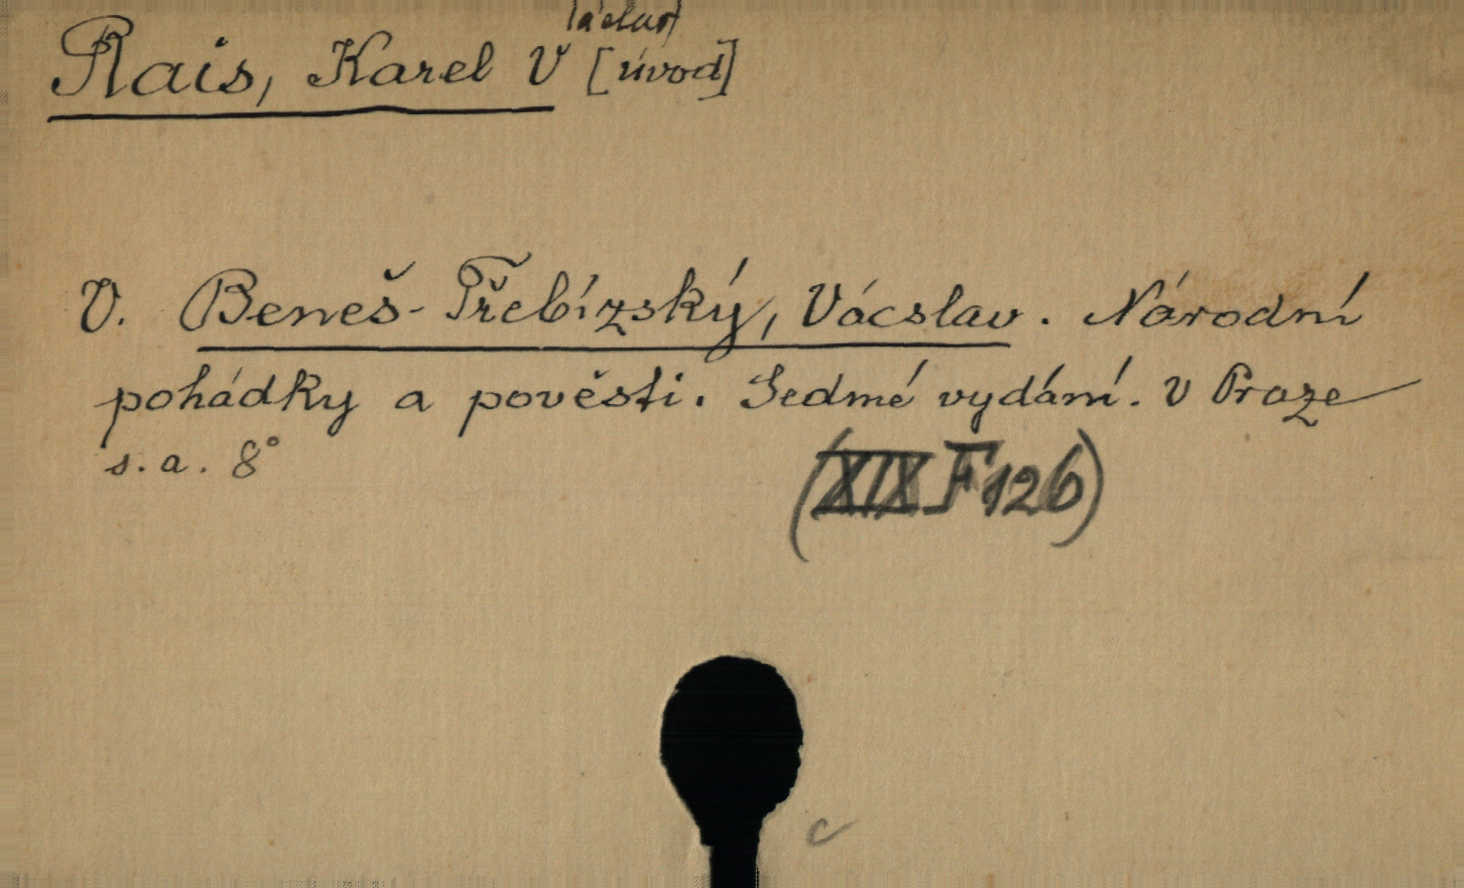 Rais, Karel Václav [úvod]
V. Beneš-Třebízský, Vácslav. Národní
pohádky a pověsti. Sedmé vydání. V Praze
s. a. 8°
(XIX F 126)
c